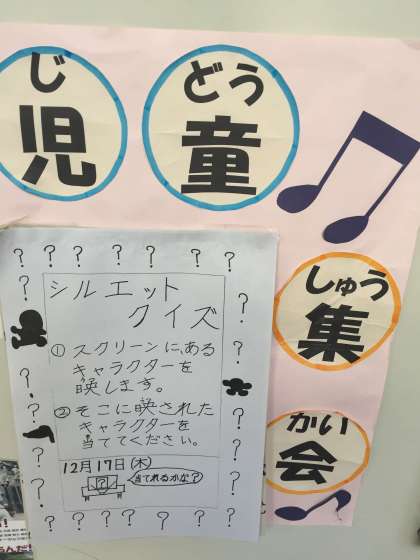 じ どう
児 童
しゅう
集
かい
会
シルエット
クイズ
① スクリーンに、ある
キャラクターを
映します。
② そこに映された
キャラクターを
当ててください。
12月17日(木)
当てれるかな?
?